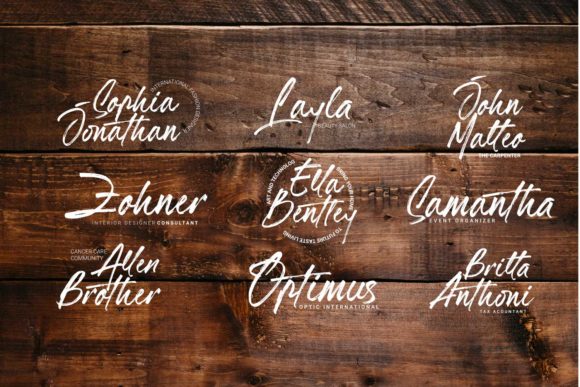 Sophia
Jonathan
INTERNATIONAL FASHION DESIGNER
Layla
BEAUTY SALON
John
Matteo
THE CARPENTER
Zohner
INTERIOR DESIGNER CONSULTANT
Ella
Bentley
ART AND TECHNOLOG
TO FUTURE TASTE LIVING
Samantha
EVENT ORGANIZER
CANCER CARE
COMMUNITY
Allen
Brother
Optimus
OPTIC INTERNATIONAL
Britta
Anthoni
TAX ACOUNTANT